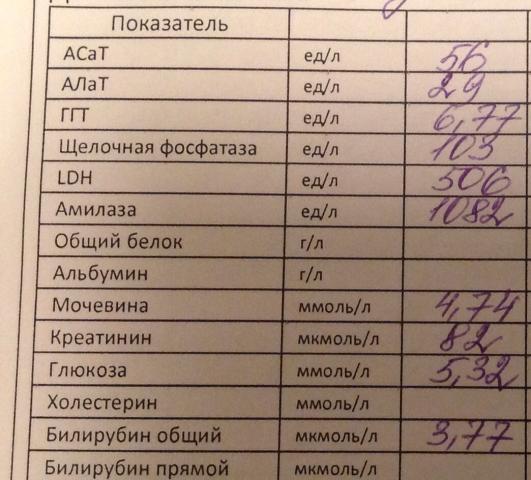 Показатель
АСаТ ед/л 56
АЛаТ ед/л 29
ГГТ ед/л 6,77
Щелочная фосфатаза ед/л 103
LDH ед/л 506
Амилаза ед/л 1082
Общий белок г/л
Альбумин г/л
Мочевина ммоль/л 4,74
Креатинин мкмоль/л 82
Глюкоза ммоль/л 5,32
Холестерин ммоль/л
Билирубин общий мкмоль/л 3,77
Билирубин прямой мкмоль/л